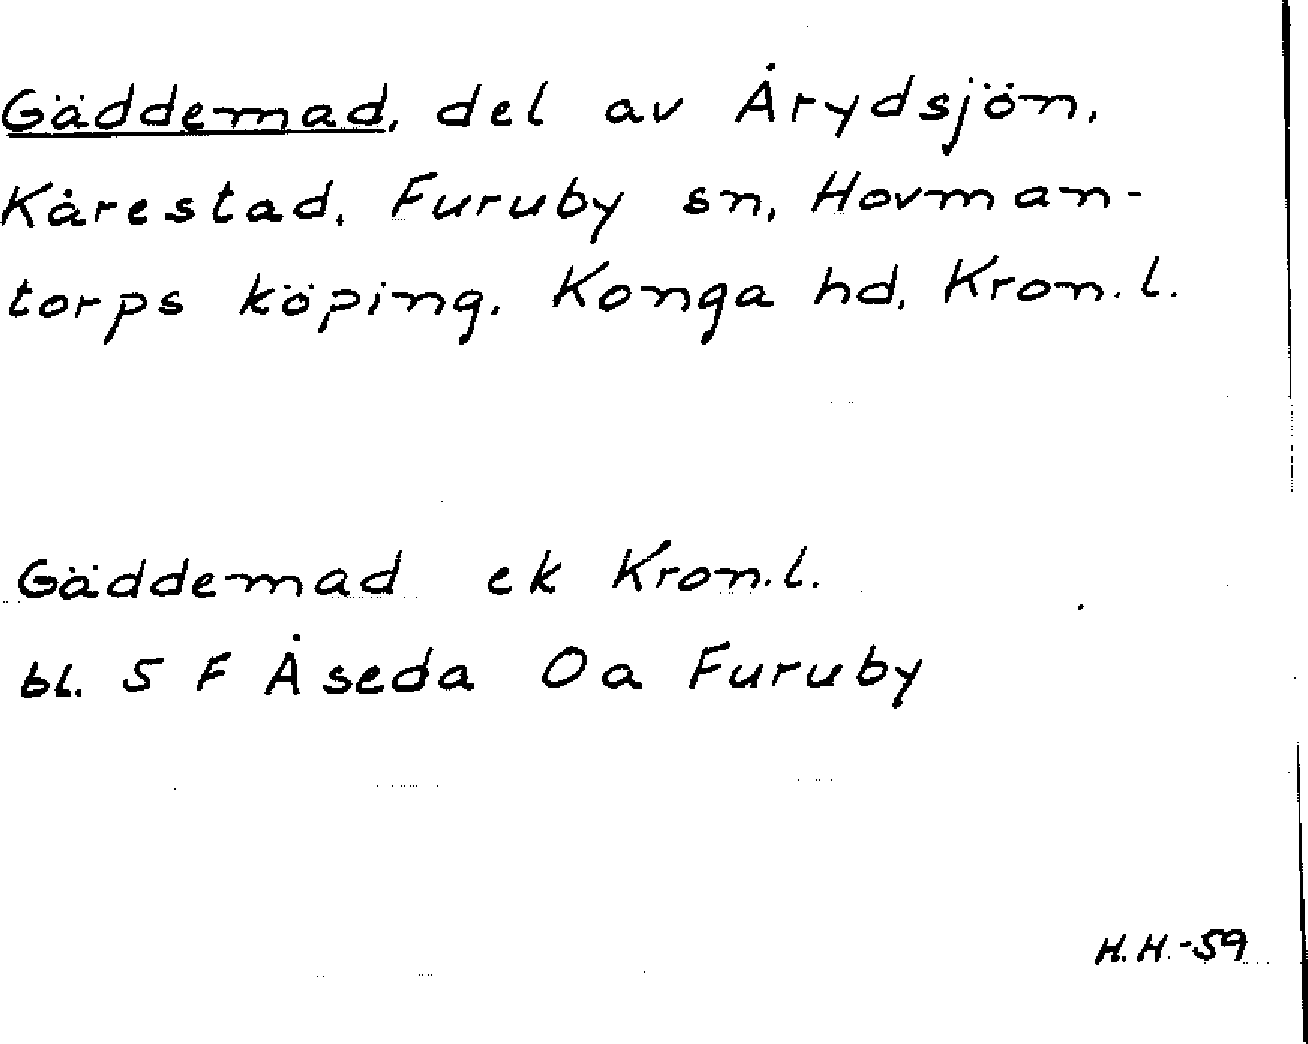 Gäddemad, del av Årydsjön,
Kårestad, Furuby sn, Hovman-
torps köping, Konga hd, Kron.l.
Gäddemad ek Kron.l.
bl. 5 F Åseda Oa Furuby
H.H.-59